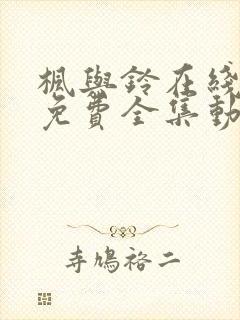 楓與鈴在綫
免費全集動
寺鳩裕二